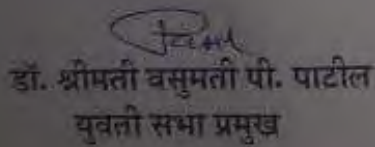 डॉ. श्रीमती वसुमती पी. पाटील
युवती सभा प्रमुख